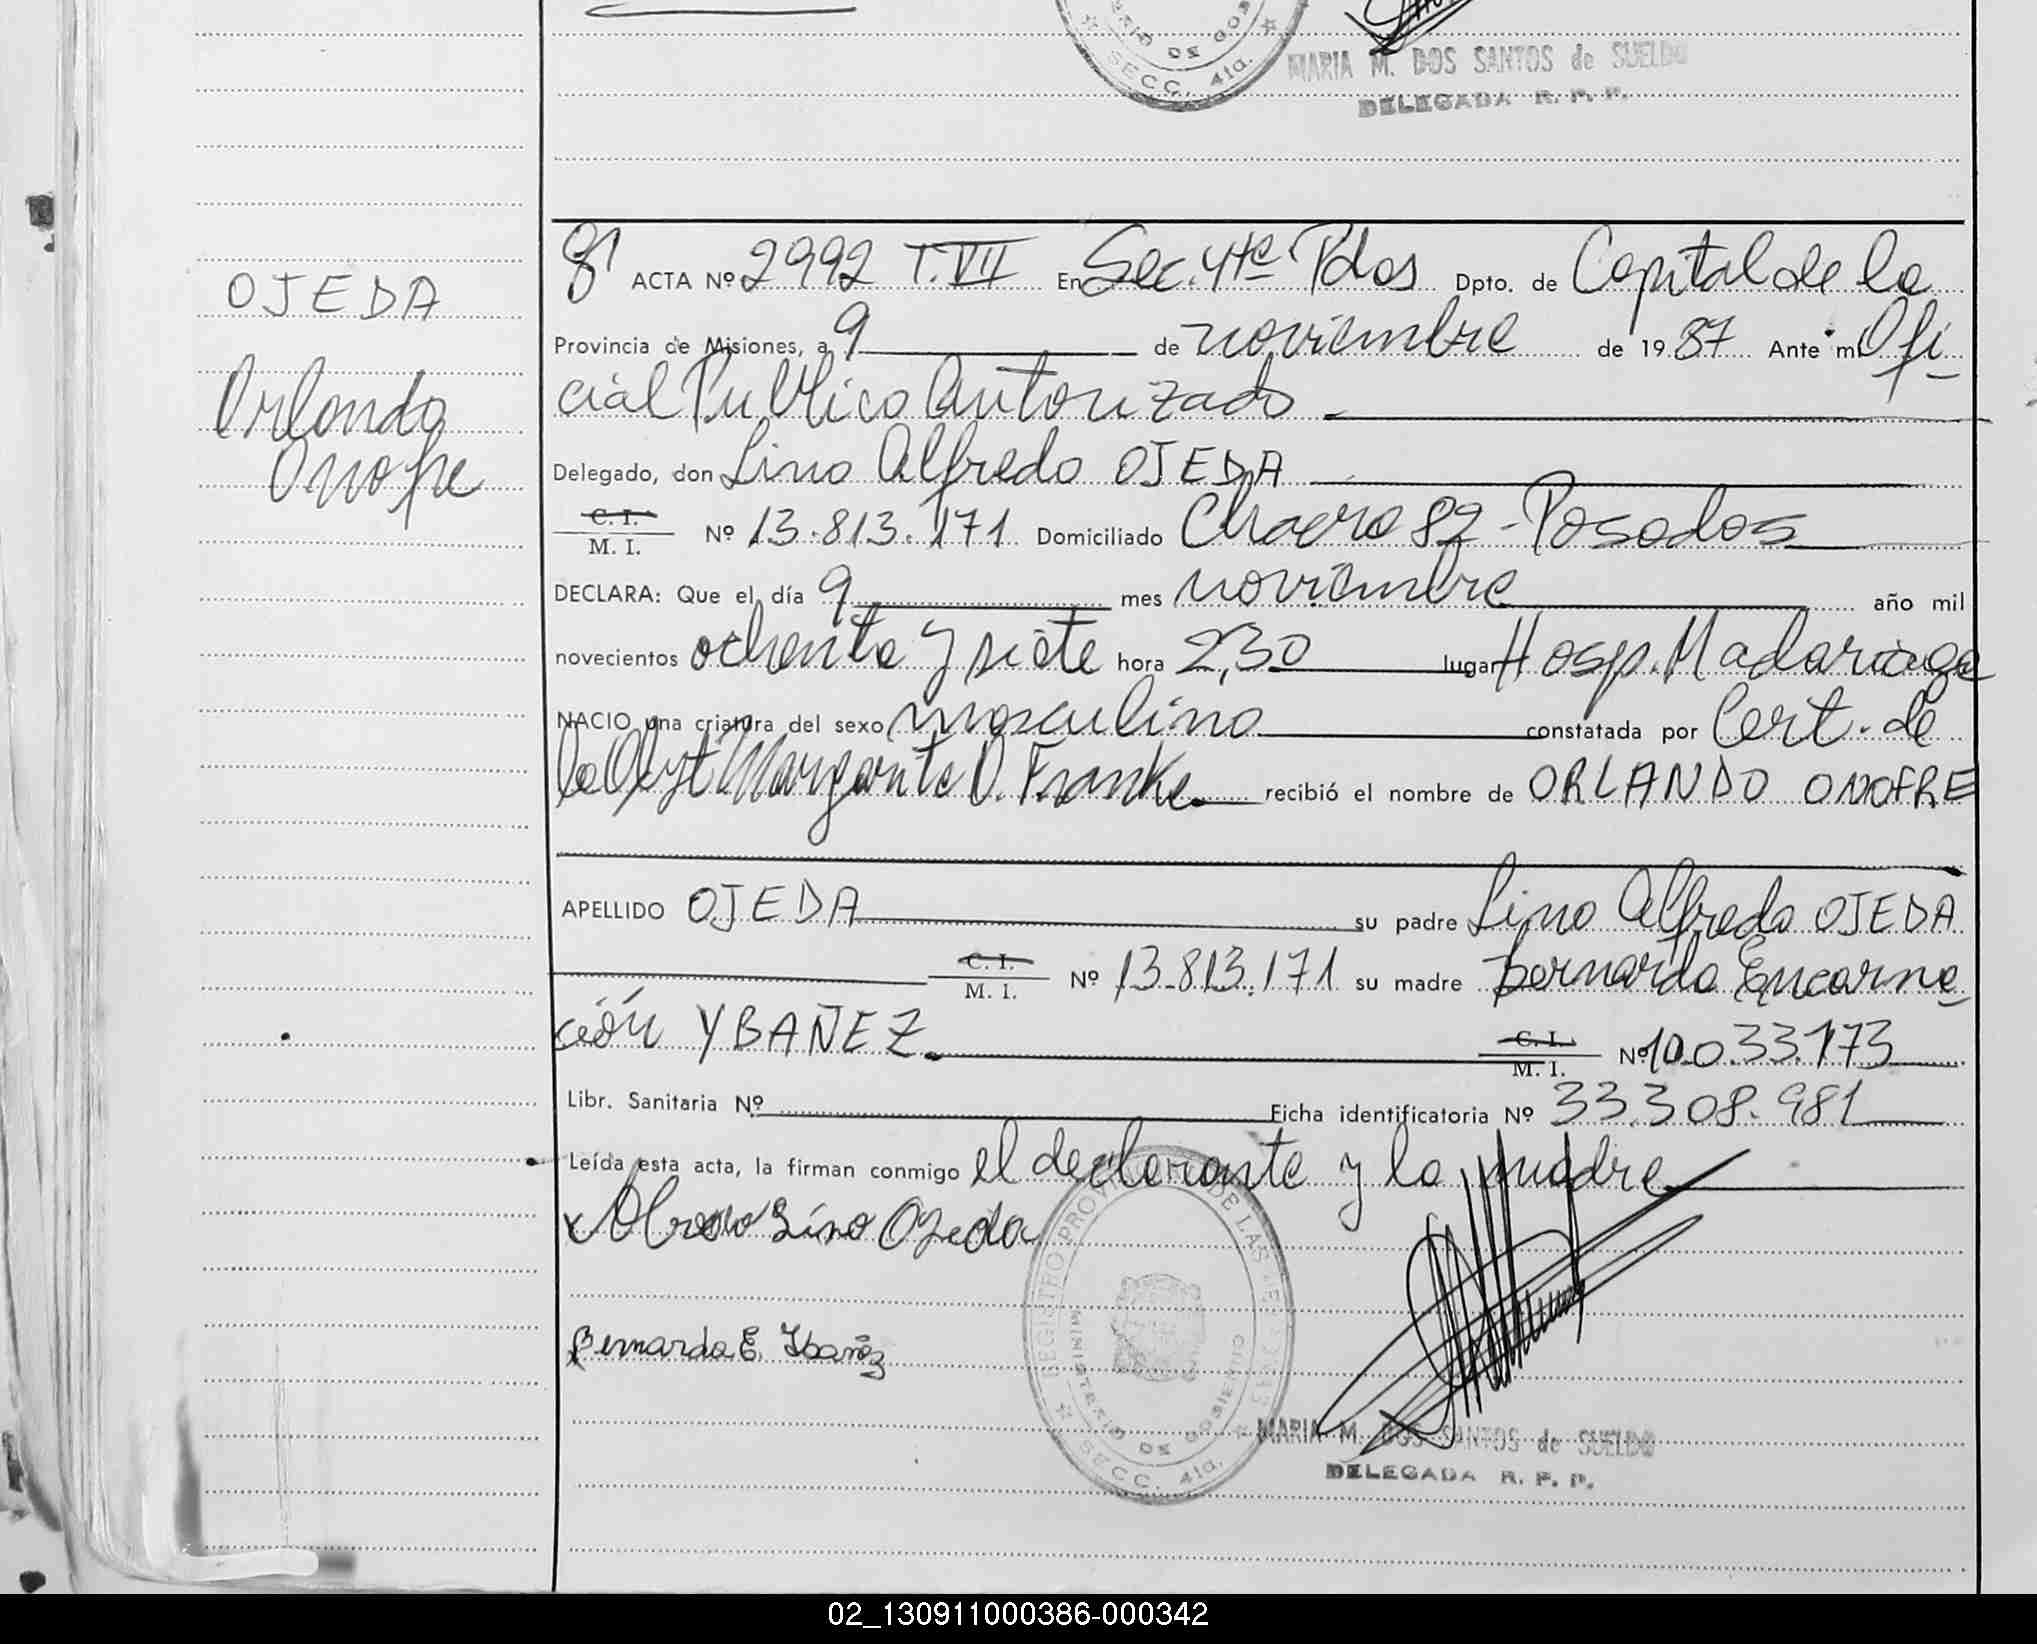 MINISTERIO DE GOBIERNO
SECC. 4ta.
MARIA M. DOS SANTOS de SUELDO
DELEGADA R. P. P.
OJEDA
Orlando
Onofre
ACTA Nº 2992 T.VII En Sec. 4ta Pdas Dpto. de Capital de la
Provincia de Misiones, a 9 de noviembre de 1987 Ante mi Ofi
cial Publico Autorizado
Delegado, don Lino Alfredo OJEDA
C. I.
M. I. Nº 13.813.171 Domiciliado 82 - Posadas
DECLARA: Que el día 9 mes noviembre año mil
novecientos ochenta y siete hora 2,30 lugar Hosp. Madariaga
NACIO una criatura del sexo masculino constatada por Cert. de
la Obst Margarita D. Franke recibió el nombre de ORLANDO ONOFRE
APELLIDO OJEDA su padre Lino Alfredo OJEDA
C. I.
M. I. Nº 13.813.171 su madre Bernarda Encarna
ción YBAÑEZ C. I.
M. I. Nº 10.033.173
Libr. Sanitaria Nº Ficha identificatoria Nº 33.308.981
Leída esta acta, la firman conmigo el declarante y la madre
Lino Ojeda
Bernarda E. Ibañez
REGISTRO PROVINCIAL DE LAS PERSONAS
MINISTERIO DE GOBIERNO
SECC. 4ta.
MARIA M. DOS SANTOS de SUELDO
DELEGADA R. P. P.
02_130911000386-000342